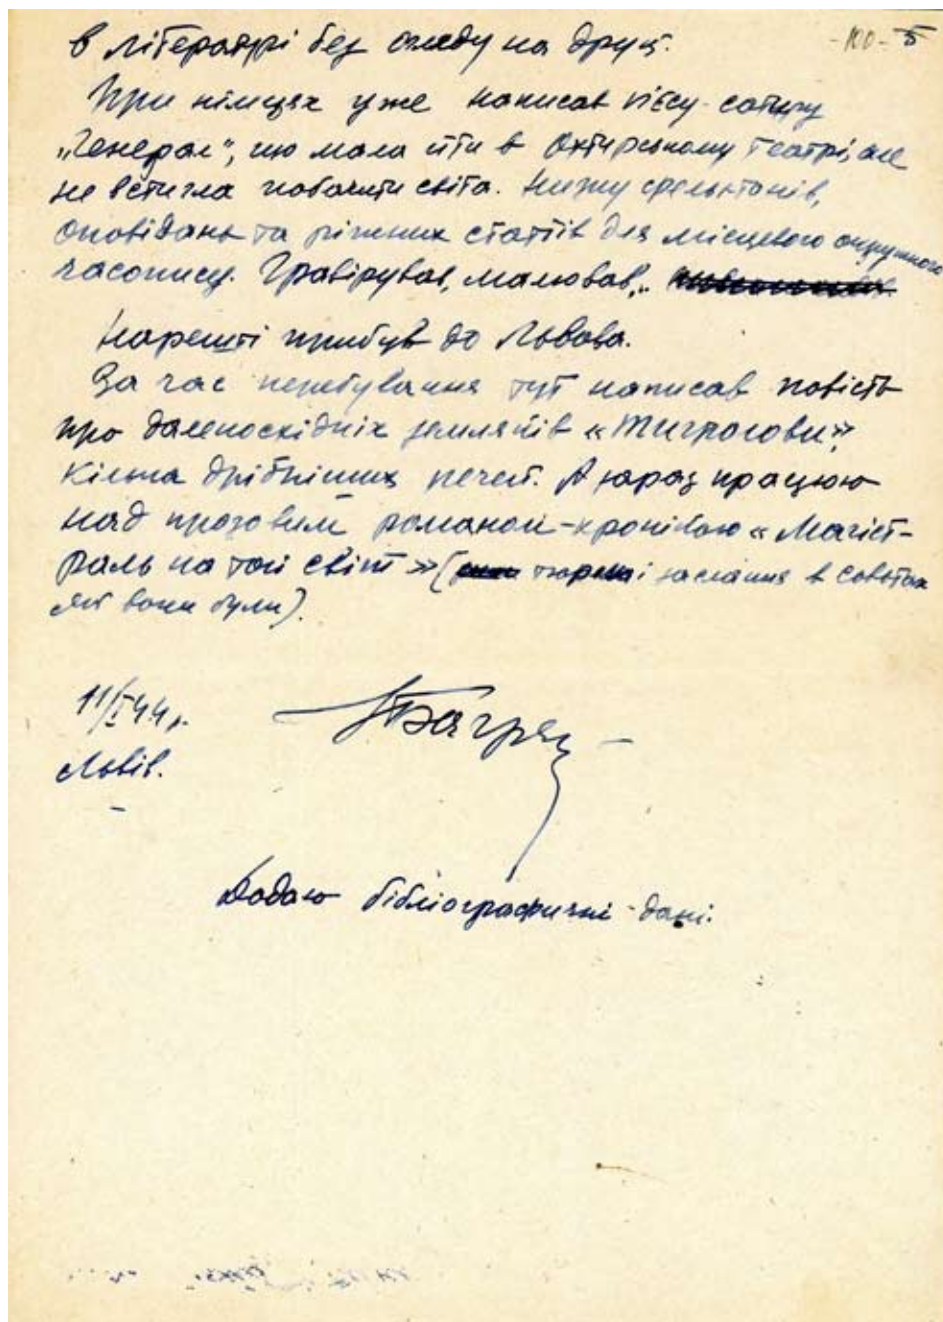 -100- 5
в літературі без огляду на друк.
При німцях уже написав п'єсу-сатиру
„Генерал", що мала йти в Охтирському театрі, але
не встигла побачити світа. Низку фельєтонів,
оповідань та ріжних статтів для місцевого окружного
часопису. Гравірував, малював,..
Нарешті прибув до Львова.
За час перебування тут написав повість
про далекосхідніх земляків «Тигролови»,
кілька дрібніших речей. А зараз працюю
над прозовим романом-хронікою «Магіст-
раль на той світ» (тюрми і заслання в совєтах
які вони були).
11/I 44 р.
Львів.
Багряний
Додаю бібліографичні дані.